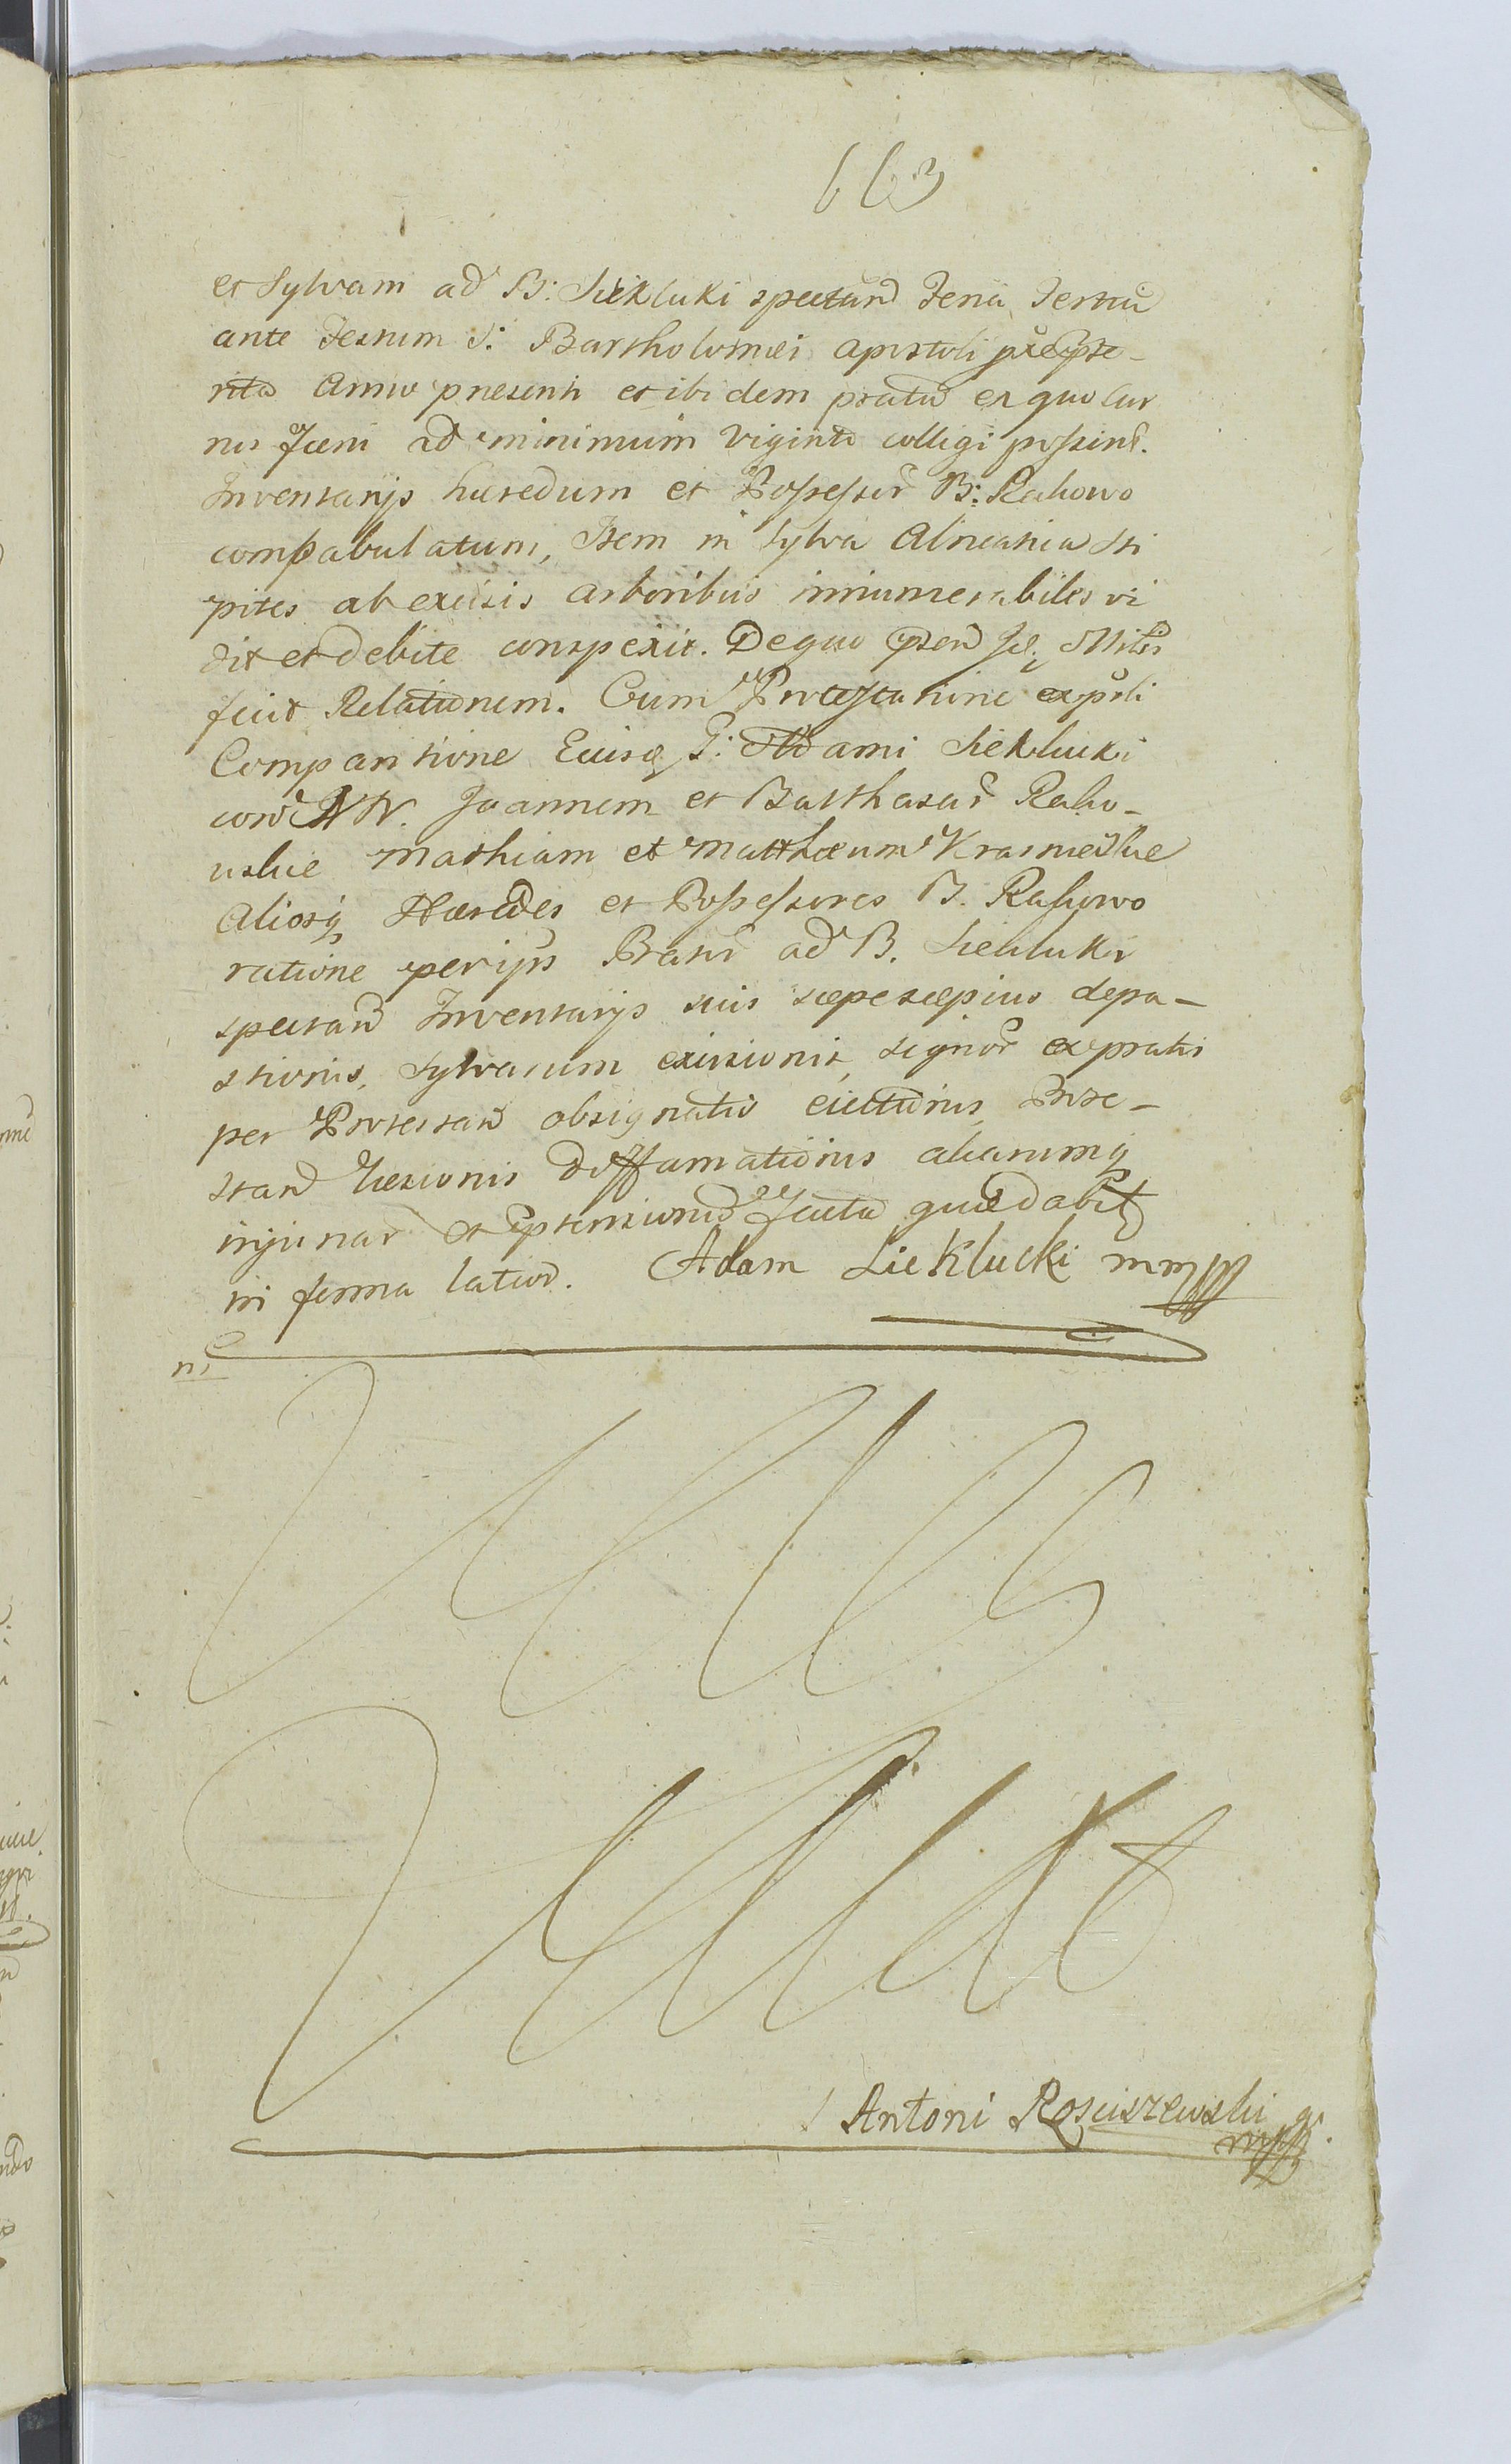 663
et Sylvam ad B: Siekluki spectand Feria Tertia
ante Festum S: Bartholomæi Apostoli præte-
rita Anno præsenti et ibidem pratũ ex quo cur
rus fæni ad minimum viginti colligi possint.
Inventarijs hæredum et Possessor B: Rakowo
compabulatum, Item in Sylva Alnearia sti
pites ab excisis arboribus innumerabiles vi
dit et debite conspexit. De quo
fecit Relationem. Cum Protestatione
Comparitione Eiusq G: Adami Siekluki
cont NN. Joannem et Balthasar Rako-
uskie Mathiam et Matthæum Krasnieskie
aliosq Hæredes et Possessores B. Rakowo
ratione per ipsos Prati ad B. Siekluki
spectand Inventarijs suis sæpesæpius depa-
stionis, Sylvarum excisionis, signor ex pratis
per Protestan obsignatis eiectionis, Prote-
stan læsionis diffamationis aliarumq
injuriar
in forma latiori. Adam Sieklucki mmpp
Antoni Rosciszewski
mpp